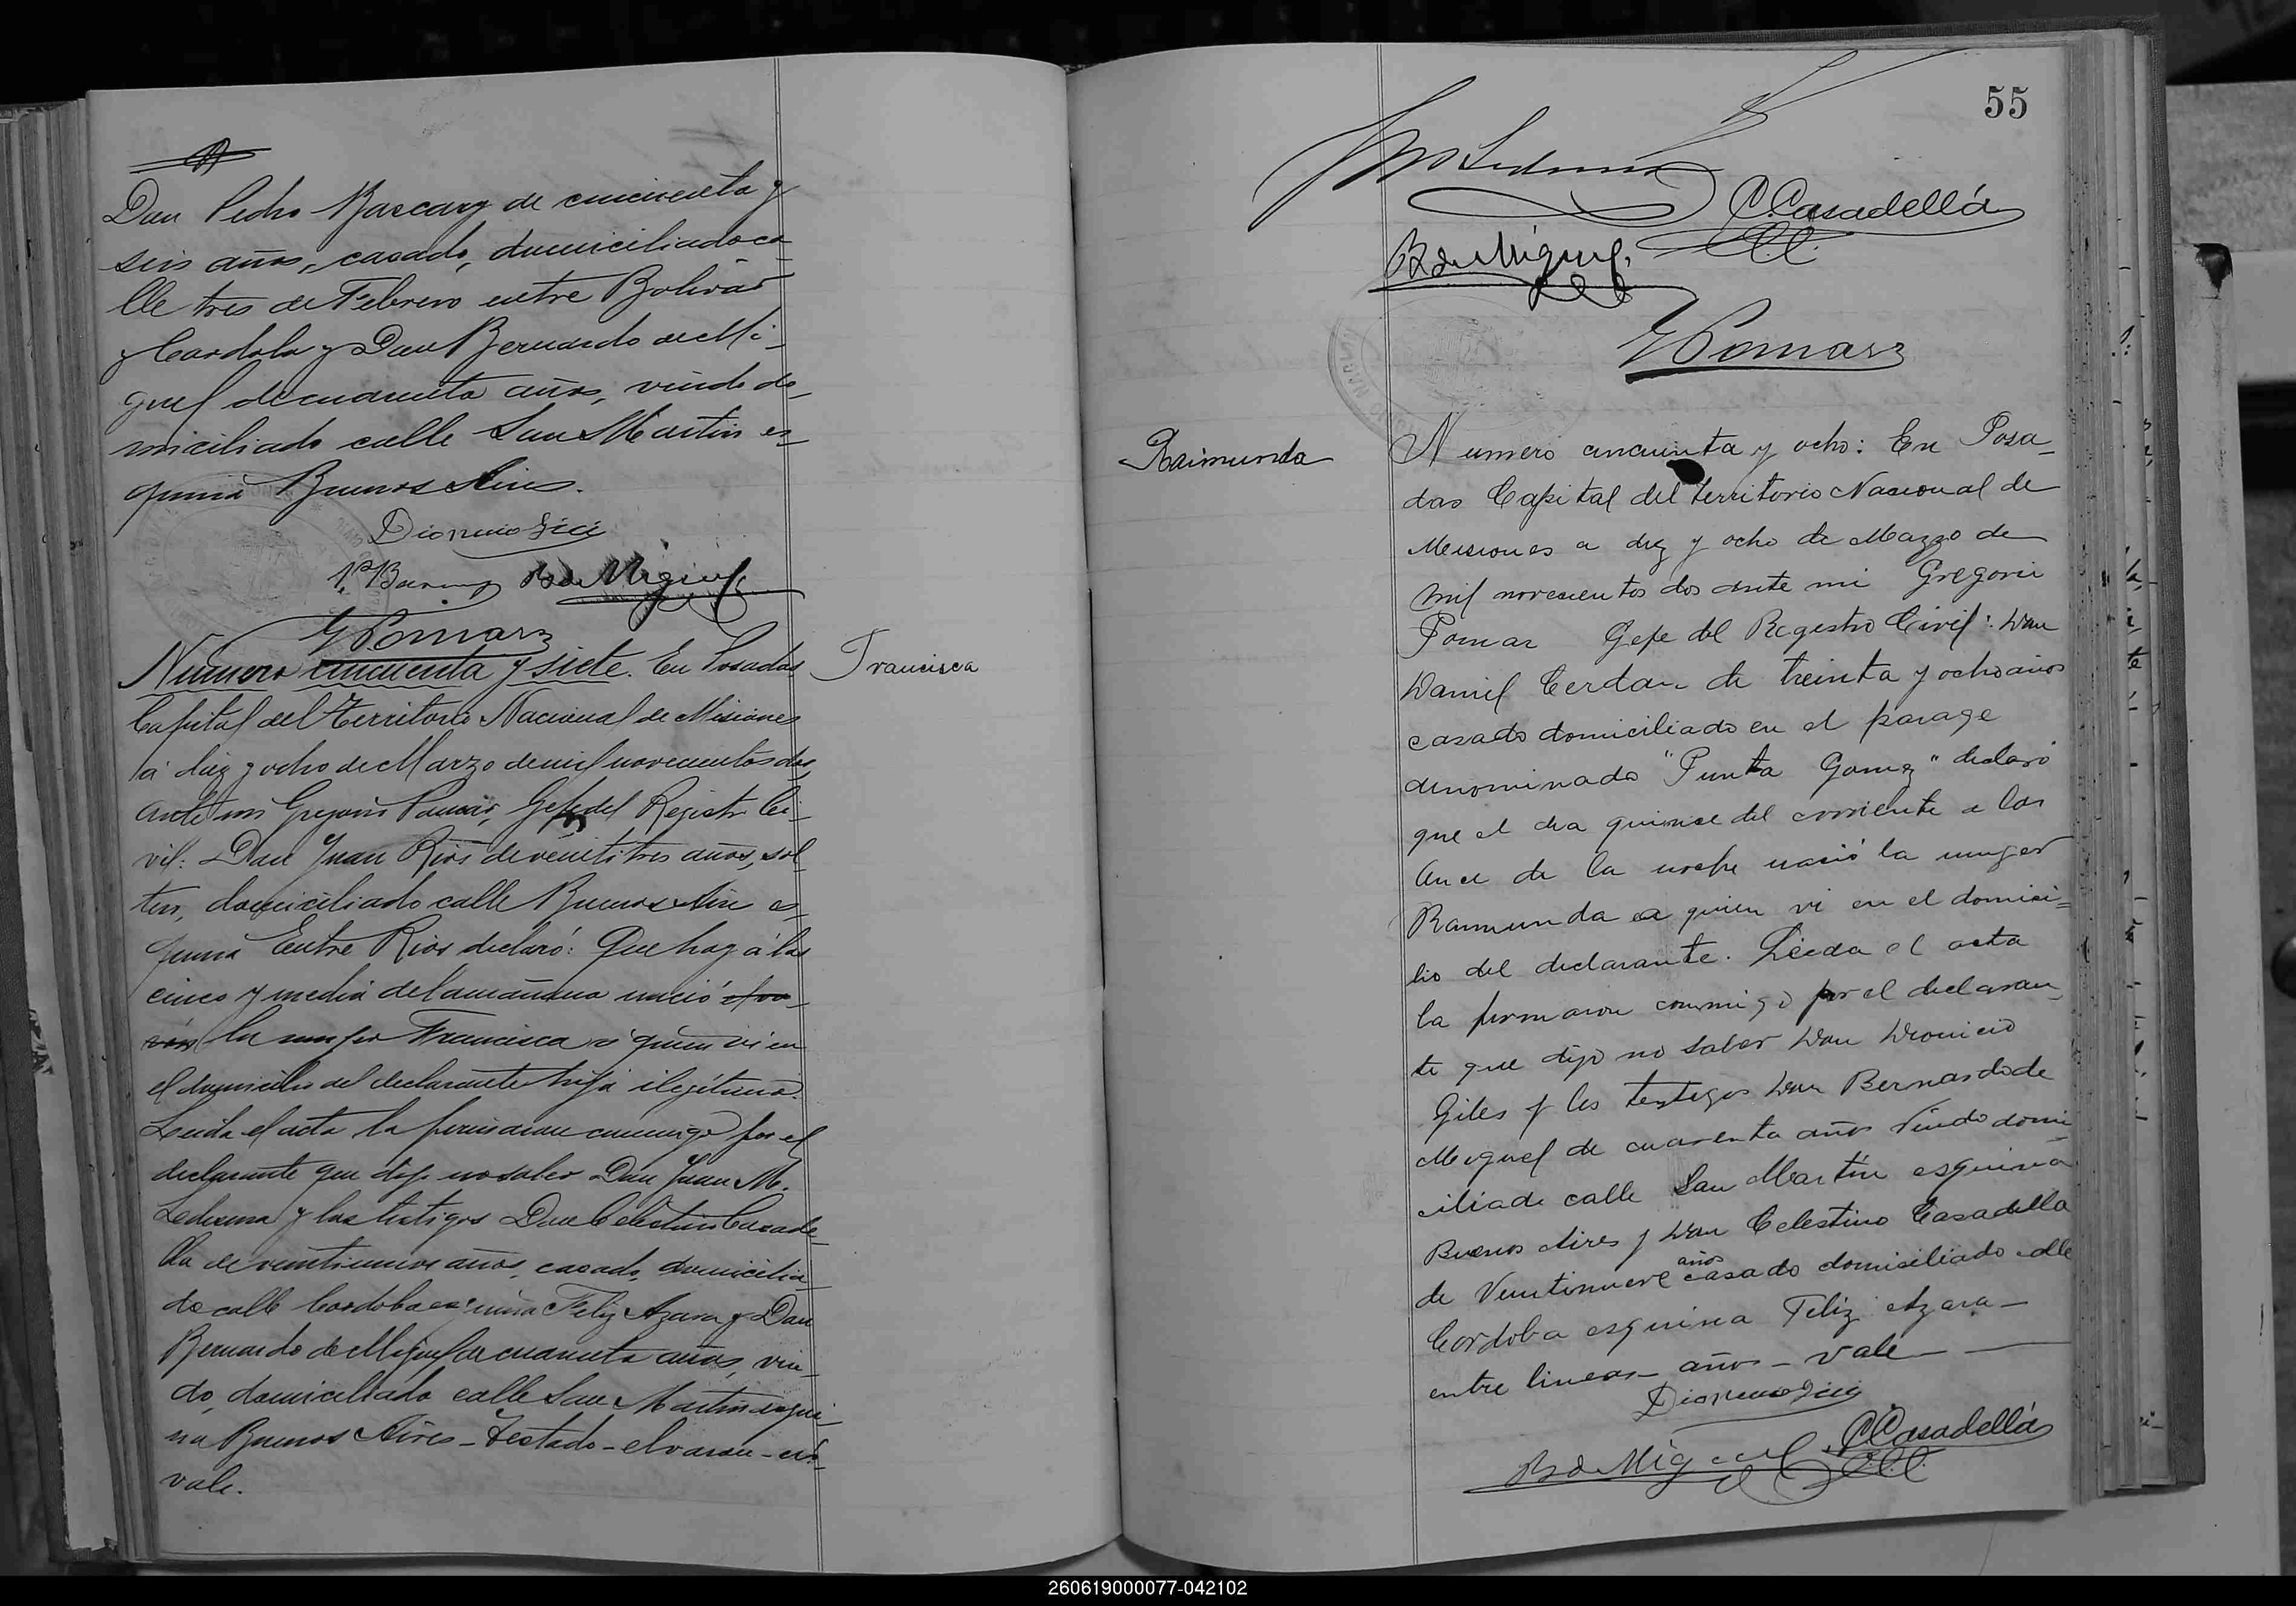 Don Pedro Bascary de cincuenta y
seis años, casado, domiciliado ca-
lle tres de Febrero entre Bolivar
y Cordoba y Don Bernardo de Mi-
guel de cuarenta años, viudo do-
miciliado calle San Martin es-
quina Buenos Aires.
Dionicio Giles
P. Bascary B de Miguel
G Pomar
Numero cincuenta y siete. En Posadas
Francisca
Capital del Territorio Nacional de Misiones
á diez y ocho de Marzo de mil novecientos dos,
ante mi Gregorio Pomar, Gefe del Registro Ci-
vil: Don Juan Rios de veintitres años, sol-
tero, domiciliado calle Buenos Aires es-
quina Entre Rios declaró: Que hoy á las
cinco y media de la mañana nació el va-
rón la mujer Francisca á quien vi en
el domicilio del declarante hija ilegítima.
Leida el acta la firmaron conmigo por el
declarante que dijo no saber Don Juan M.
Ledesma y los testigos Don Celestino Casade-
lla de veintinueve años, casado, domicilia-
do calle Cordoba esquina Feliz Azara y Don
Bernardo de Miguel de cuarenta años, viu-
do, domiciliado calle San Martin esqui-
na Buenos Aires - Testado - el varon -
vale.
55
JM Ledesma
C. Casadellá
B de Miguel
G Pomar
Raimunda
Numero cincuenta y ocho: En Posa-
das Capital del territorio Nacional de
Misiones a diez y ocho de Marzo de
mil novecientos dos ante mi Gregorio
Pomar Gefe del Registro Civil: Don
Daniel Cerdan de treinta y ocho años
casado domiciliado en el parage
denominado "Punta Gomez" declaró
que el dia quinse del corriente a las
once de la noche nació la muger
Ramunda a quien vi en el domici=
lio del declarante. Leida el acta
la firmaron conmigo por el declaran-
te que dijo no saber Don Dionicio
Giles y los testigos Don Bernardo de
Miguel de cuarenta años Viudo domi-
ciliado calle San Martin esquina
Buenos Aires y Don Celestino Casadella
años
de Veintinueve casado domisiliado calle
Cordoba esquina Feliz Azara -
entre lineas - años - vale
Dionicio Giles
B de Miguel C. Casadellá
260619000077-042102